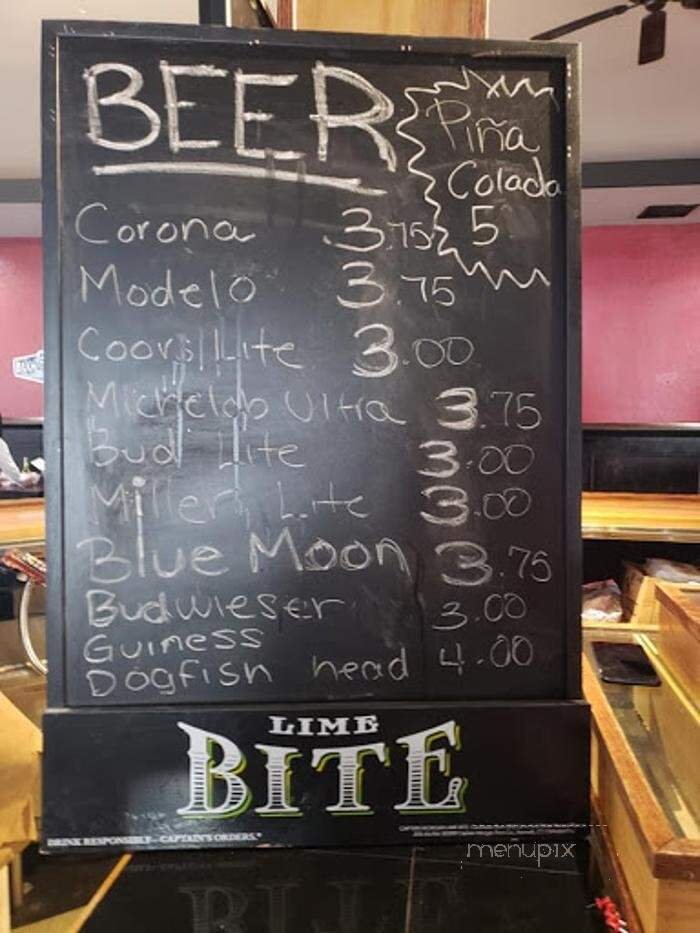 BEER
Piña
Colada
5
Corona 3.75
Modelo 3.75
Coors Lite 3.00
Michelob Ultra 3.75
Bud Lite 3.00
Miller Lite 3.00
Blue Moon 3.75
Budwieser 3.00
Guiness
Dogfish head 4.00
LIME
BITE
DRINK RESPONSIBLY - CAPTAIN'S ORDERS.
menupix